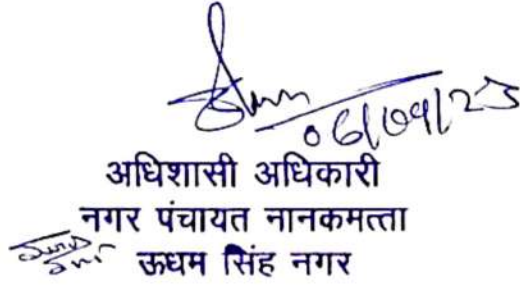 06/09/23
अधिशासी अधिकारी
नगर पंचायत नानकमत्ता
ऊधम सिंह नगर